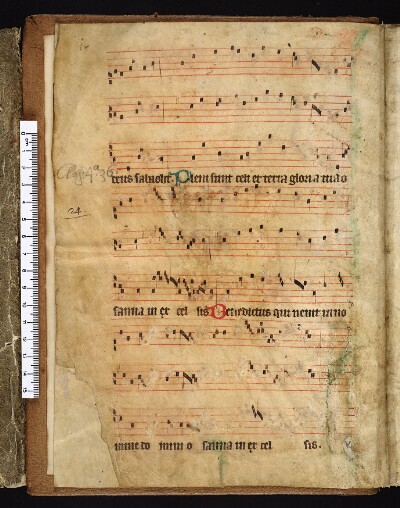 teus sabaoth. Pleni sunt celi et terra gloria tua o
24.
sanna in ex cel sis Benedictus qui uenit in no
mine do mini o sanna in ex cel sis.